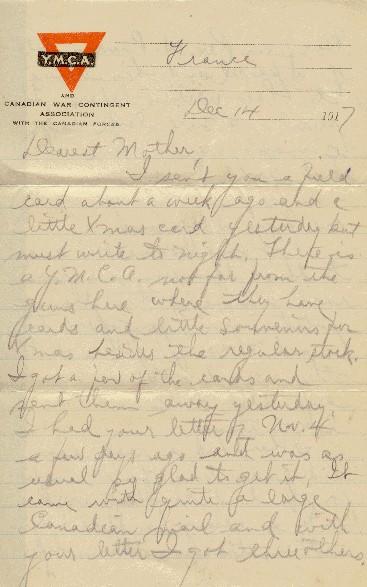 Y.M.C.A.
AND
CANADIAN WAR CONTINGENT
ASSOCIATION
WITH THE CANADIAN FORCES.
France
Dec 14 1917
Dearest Mother,
I sent you a field
card about a week ago and a
little Xmas card yesterday but
must write to night. There is
a Y.M.C.A. not far from the
guns here where they have
cards and little souvenirs for
Xmas besides the regular stock.
I got a few of the cards and
sent them away yesterday.
I had your letter of Nov. 4
a few days ago and was as
usual glad to get it. It
came with quite a large
Canadian mail and with
your letter I got three others.